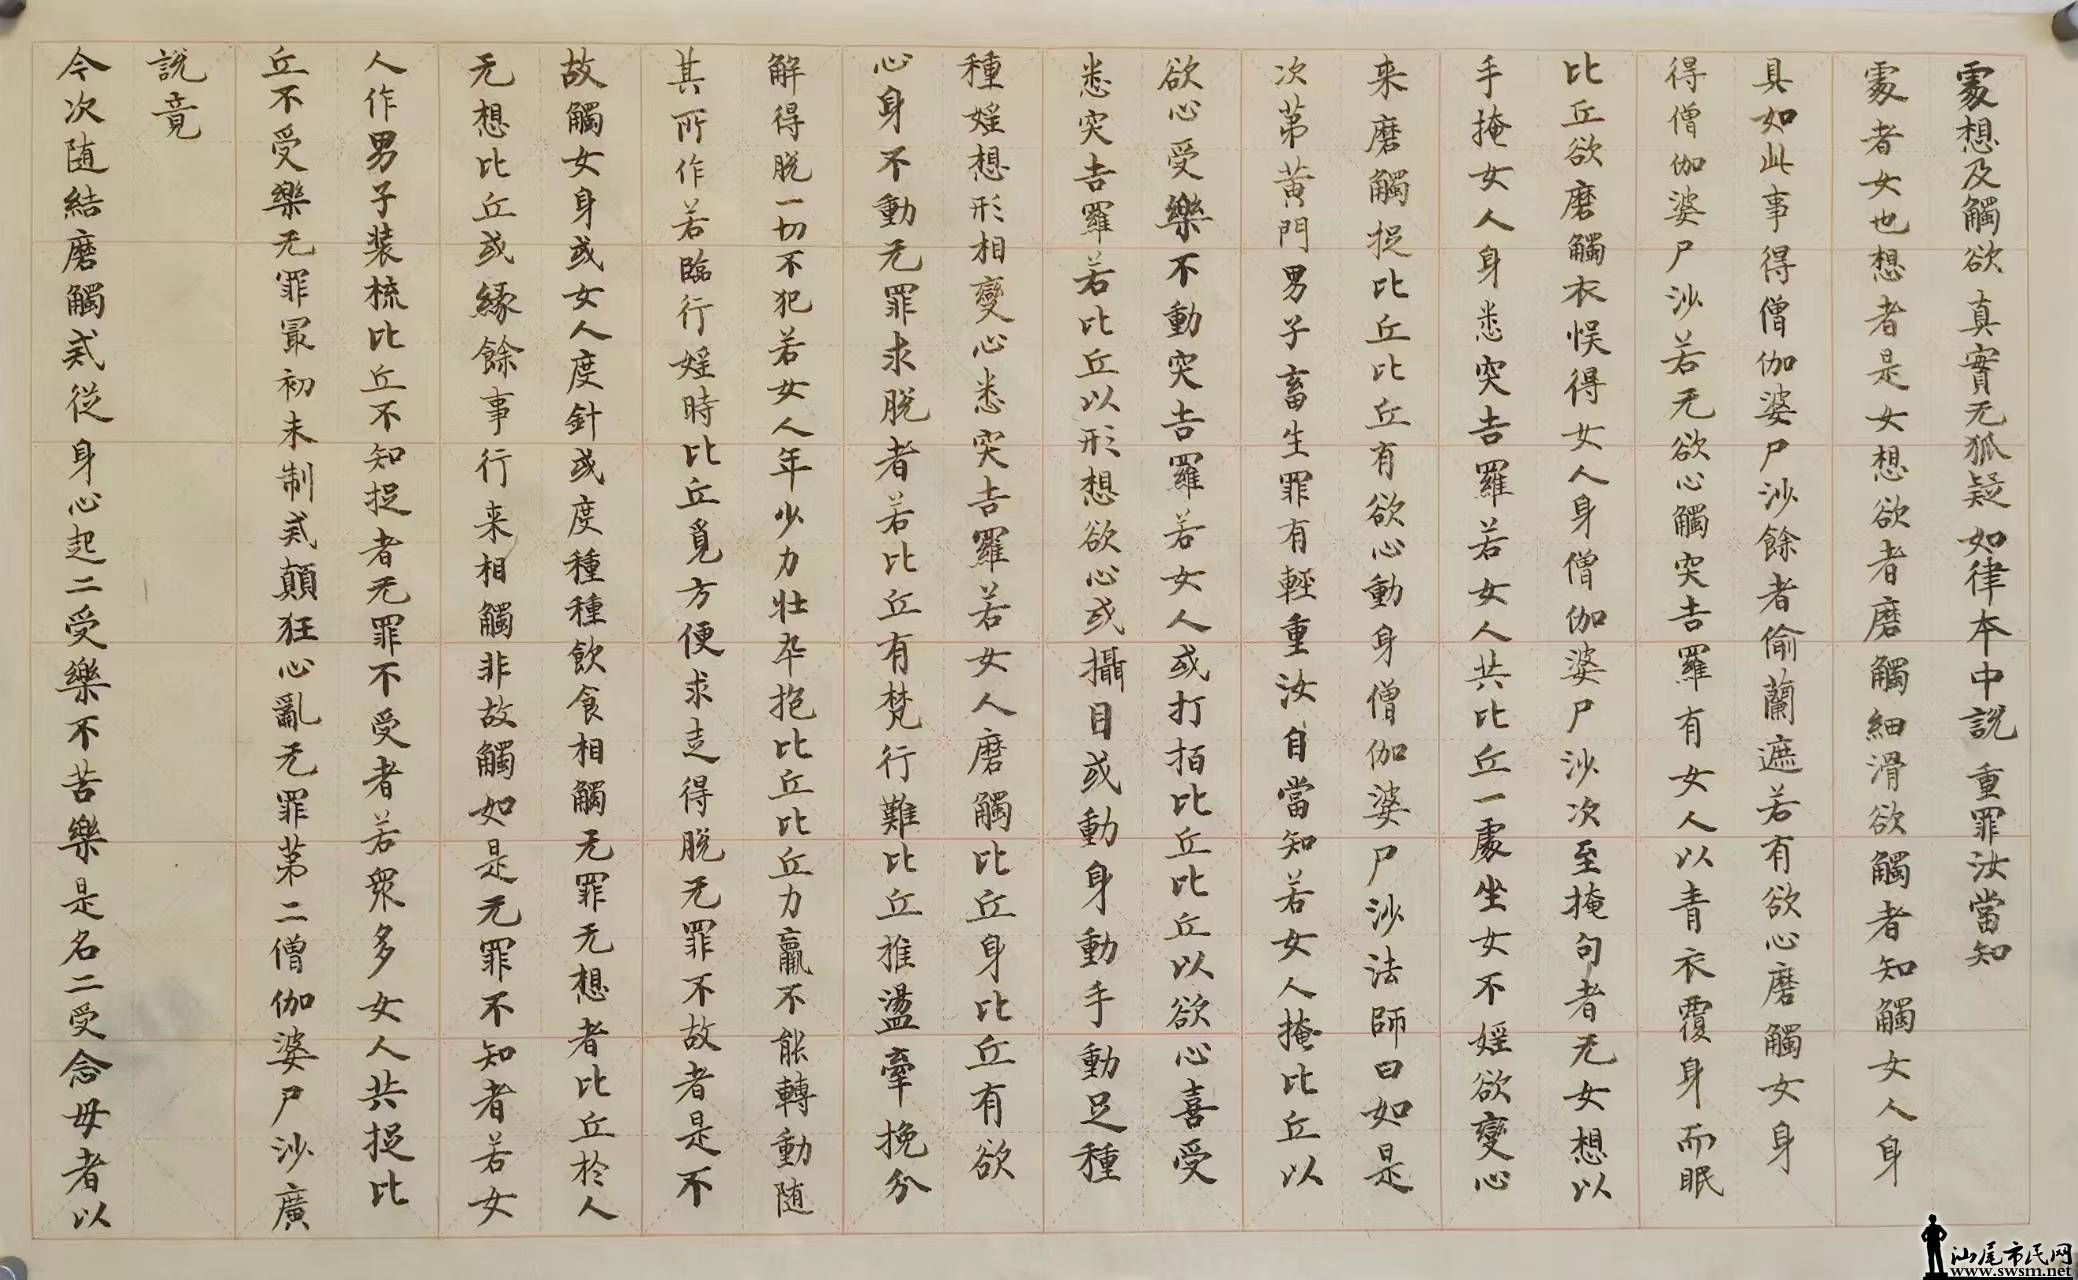 處想及觸欲 真實无狐疑 如律本中說 重罪汝當知
處者女也想者是女想欲者磨觸細滑欲觸者知觸女人身
具如此事得僧伽婆尸沙餘者偷蘭遮若有欲心磨觸女身
得僧伽婆尸沙若无欲心觸突吉羅有女人以青衣覆身而眠
比丘欲磨觸衣悞得女人身僧伽婆尸沙次至掩句者无女想以
手掩女人身悉突吉羅若女人共比丘一處坐女不婬欲變心
来磨觸捉比丘比丘有欲心動身僧伽婆尸沙法師曰如是
次第黄門男子畜生罪有輕重汝自當知若女人掩比丘以
欲心受樂不動突吉羅若女人或打拍比丘比丘以欲心喜受
悉突吉羅若比丘以形想欲心或攝目或動身動手動足種
種婬想形相變心悉突吉羅若女人磨觸比丘身比丘有欲
心身不動无罪求脱者若比丘有梵行難比丘推盪牽挽分
解得脱一切不犯若女人年少力壯卒抱比丘比丘力羸不能轉動随
其所作若臨行婬時比丘覓方便求走得脱无罪不故者是不
故觸女身或女人度針或度種種飲食相觸无罪无想者比丘於人
无想比丘或緣餘事行来相觸非故觸如是无罪不知者若女
人作男子裝梳比丘不知捉者无罪不受者若衆多女人共捉比
丘不受樂无罪冣初未制戒顛狂心亂无罪第二僧伽婆尸沙廣
說竟
今次随結磨觸戒從身心起二受樂不苦樂是名二受念母者以
汕尾市民网
www.swsm.net